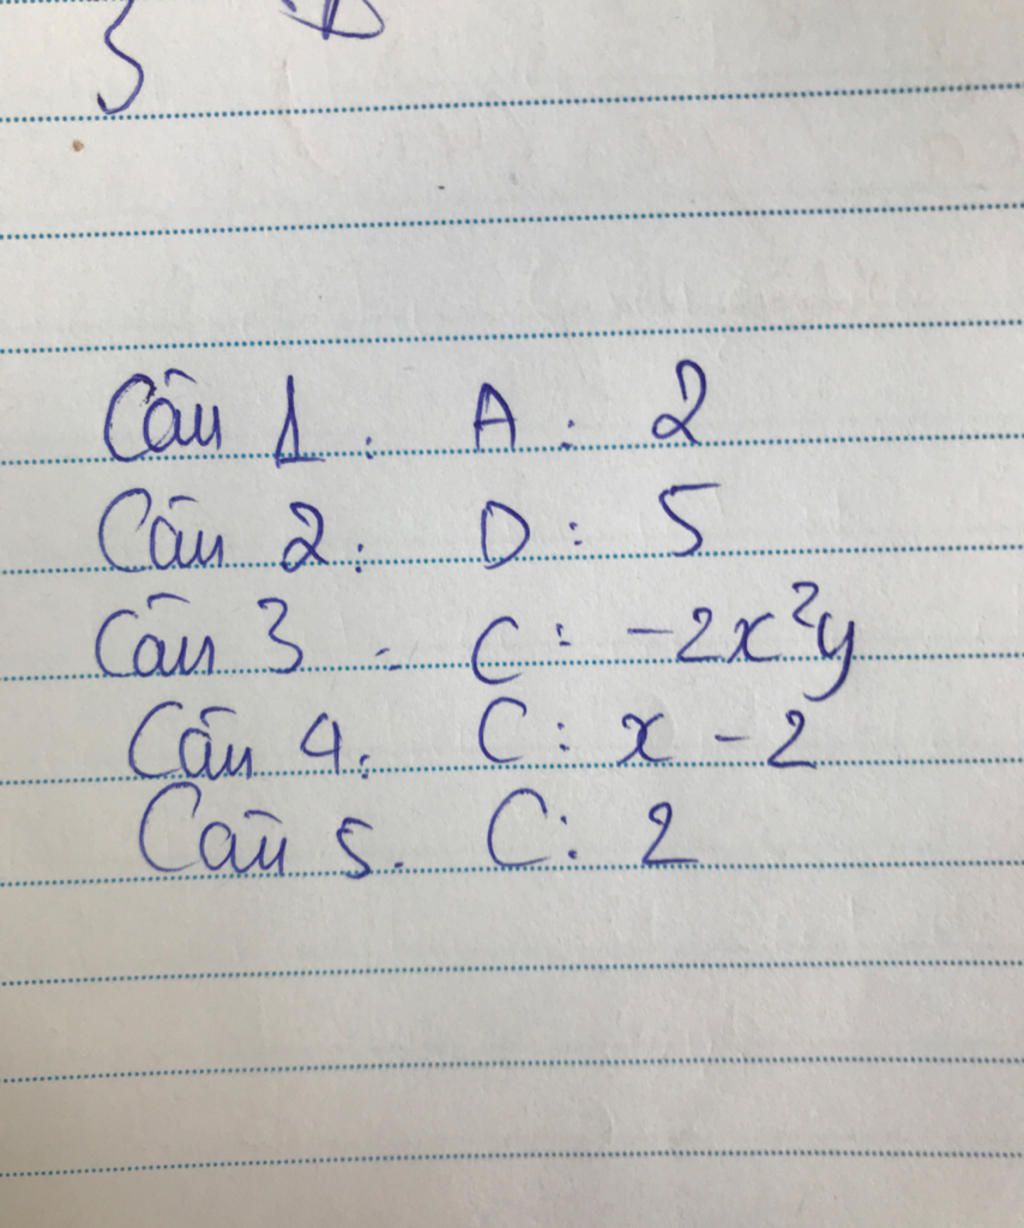 Câu 1: A: 2
Câu 2: D: 5
Câu 3 - C: -2x²y
Câu 4: C: x - 2
Câu 5. C: 2